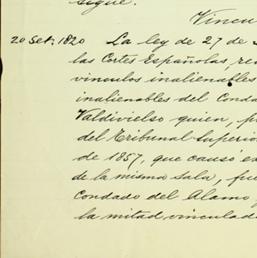 rigue.
Vincu
20 Set; 1820 La ley de 27 de S
las Cortes Españolas, re
vinculos inalienables
inalienables del Conda
Valdivielso quien, p
del Tribunal Superio
de 1857, que causó e
de la misma Sala, fue
condado del Alamo
la mitad vinculad